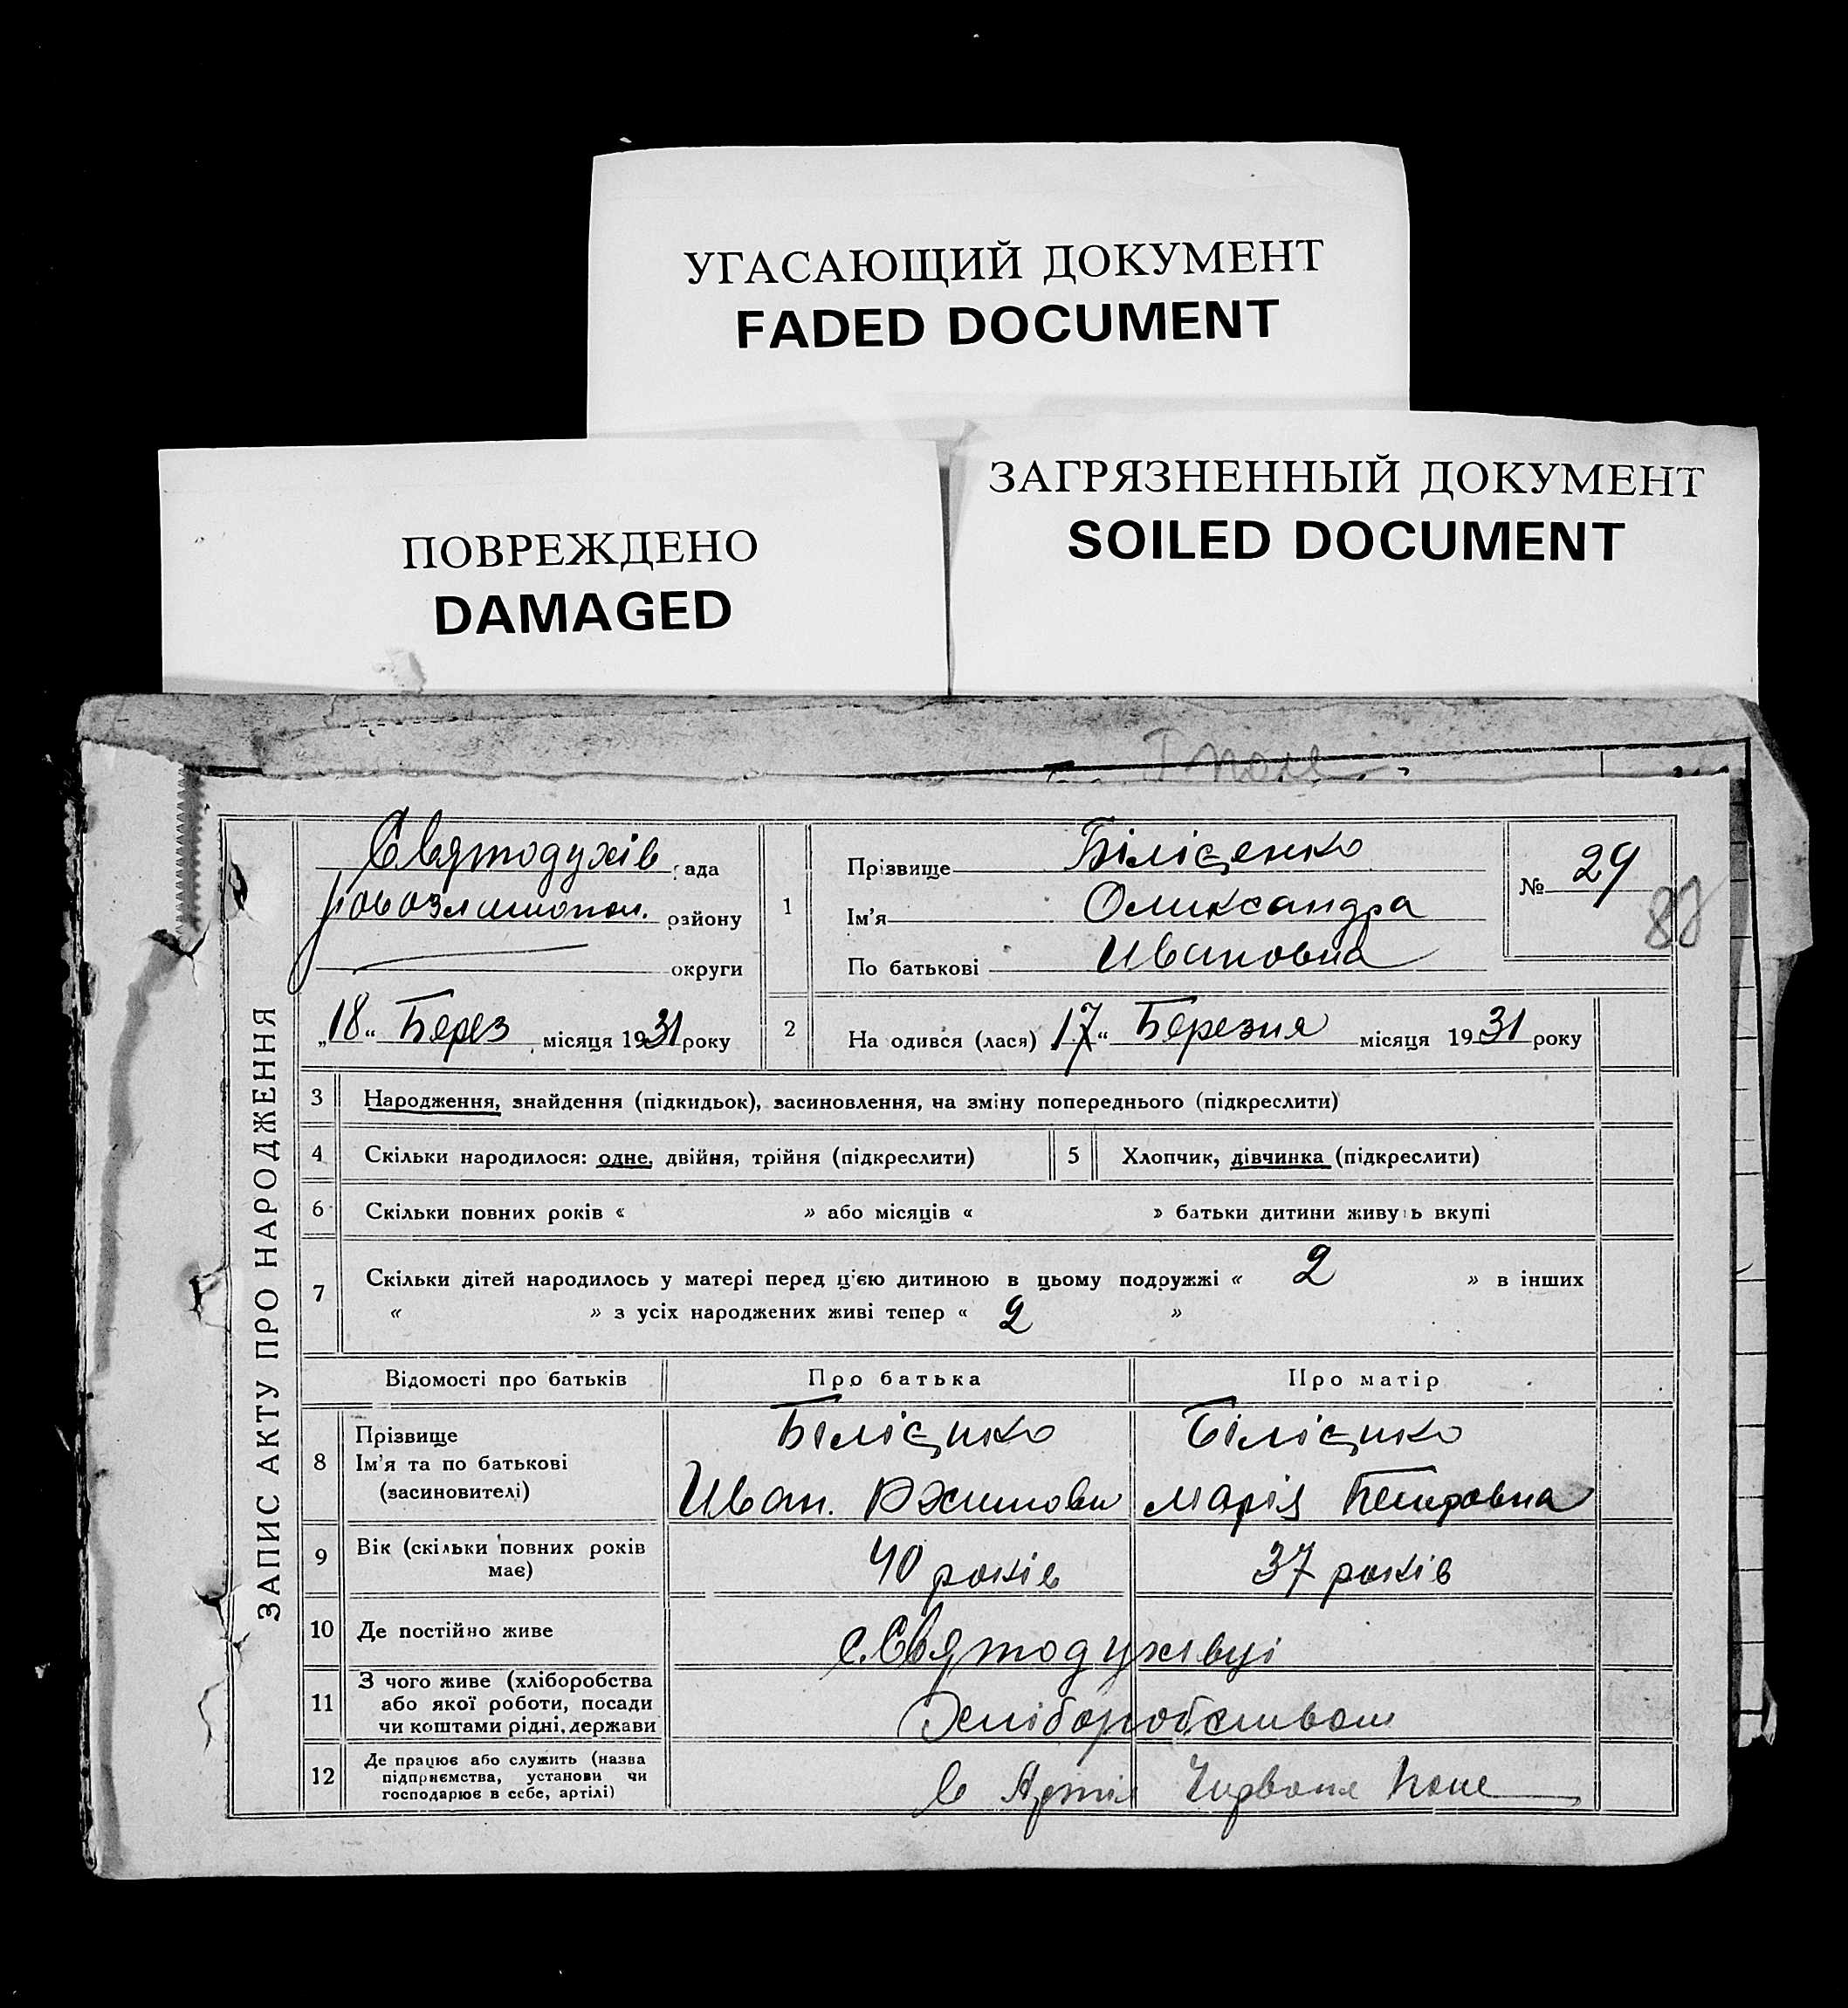 УГАСАЮЩИЙ ДОКУМЕНТ
FADED DOCUMENT
ПОВРЕЖДЕНО
DAMAGED
ЗАГРЯЗНЕННЫЙ ДОКУМЕНТ
SOILED DOCUMENT
ЗАПИС АКТУ ПРО НАРОДЖЕННЯ
Святодухів рада
району
округи
„18“ Берез місяця 1931 року
1
Прізвище Біліценко
Ім'я Олександра
По батькові Ивановна
№ 29
2 На одився (лася) 17“ Березня місяця 1931 року
3 Народження, знайдення (підкидьок), засиновлення, на зміну попереднього (підкреслити)
4 Скільки народилося: одне, двійня, трійня (підкреслити)
5 Хлопчик, дівчинка (підкреслити)
6 Скільки повних років « » або місяців « » батьки дитини живуть вкупі
7 Скільки дітей народилось у матері перед ц'єю дитиною в цьому подружжі « 2 » в інших
« » з усіх народжених живі тепер « 2 »
Відомості про батьків Про батька Про матір
8 Прізвище
Ім'я та по батькові
(засиновителі)
Біліцнко
Иван.
Біліцнко
Марія Петровна
9 Вік (скільки повних років
має)
40 років 37 років
10 Де постійно живе с. Святодухівці
11 З чого живе (хліборобства
або якої роботи, посади
чи коштами рідні, держави
Хліборобством
12 Де працює або служить (назва
підприємства, установи чи
господарює в себе, артілі)
в Артіл Червоне Поле